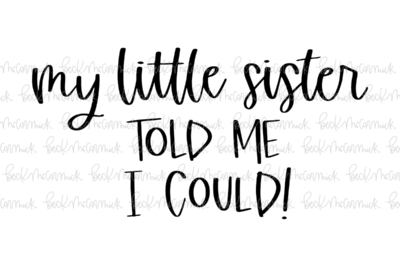 my little sister
TOLD ME
I COULD!